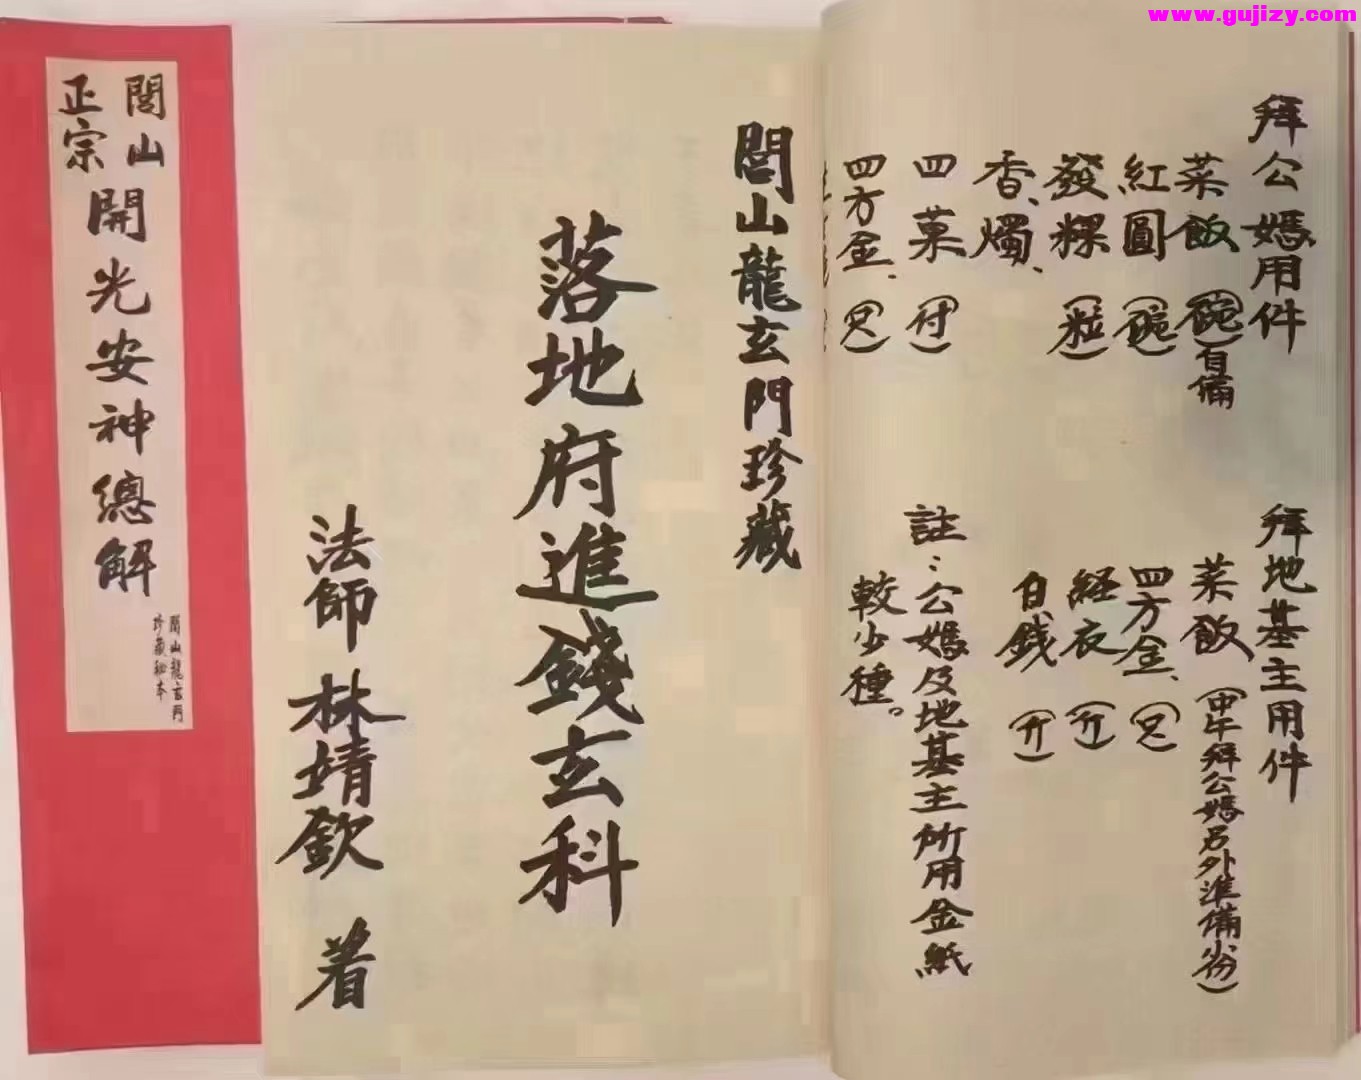 www.gujizy.com
閭山
正宗
開光安神總解
閭山龍玄門
珍藏秘本
閭山龍玄門珍藏
落地府進錢玄科
法師 林婧欽 着
拜公媽用件
菜飯(碗)自備
紅圓(碗)
發粿(粒)
香、燭、
四菓(付)
四方金、(只)
拜地基主用件
菜飯(中午拜公媽另外準備份)
四方金、(只)
経衣(斤)
白錢(斤)
註:公媽及地基主所用金紙
較少種。